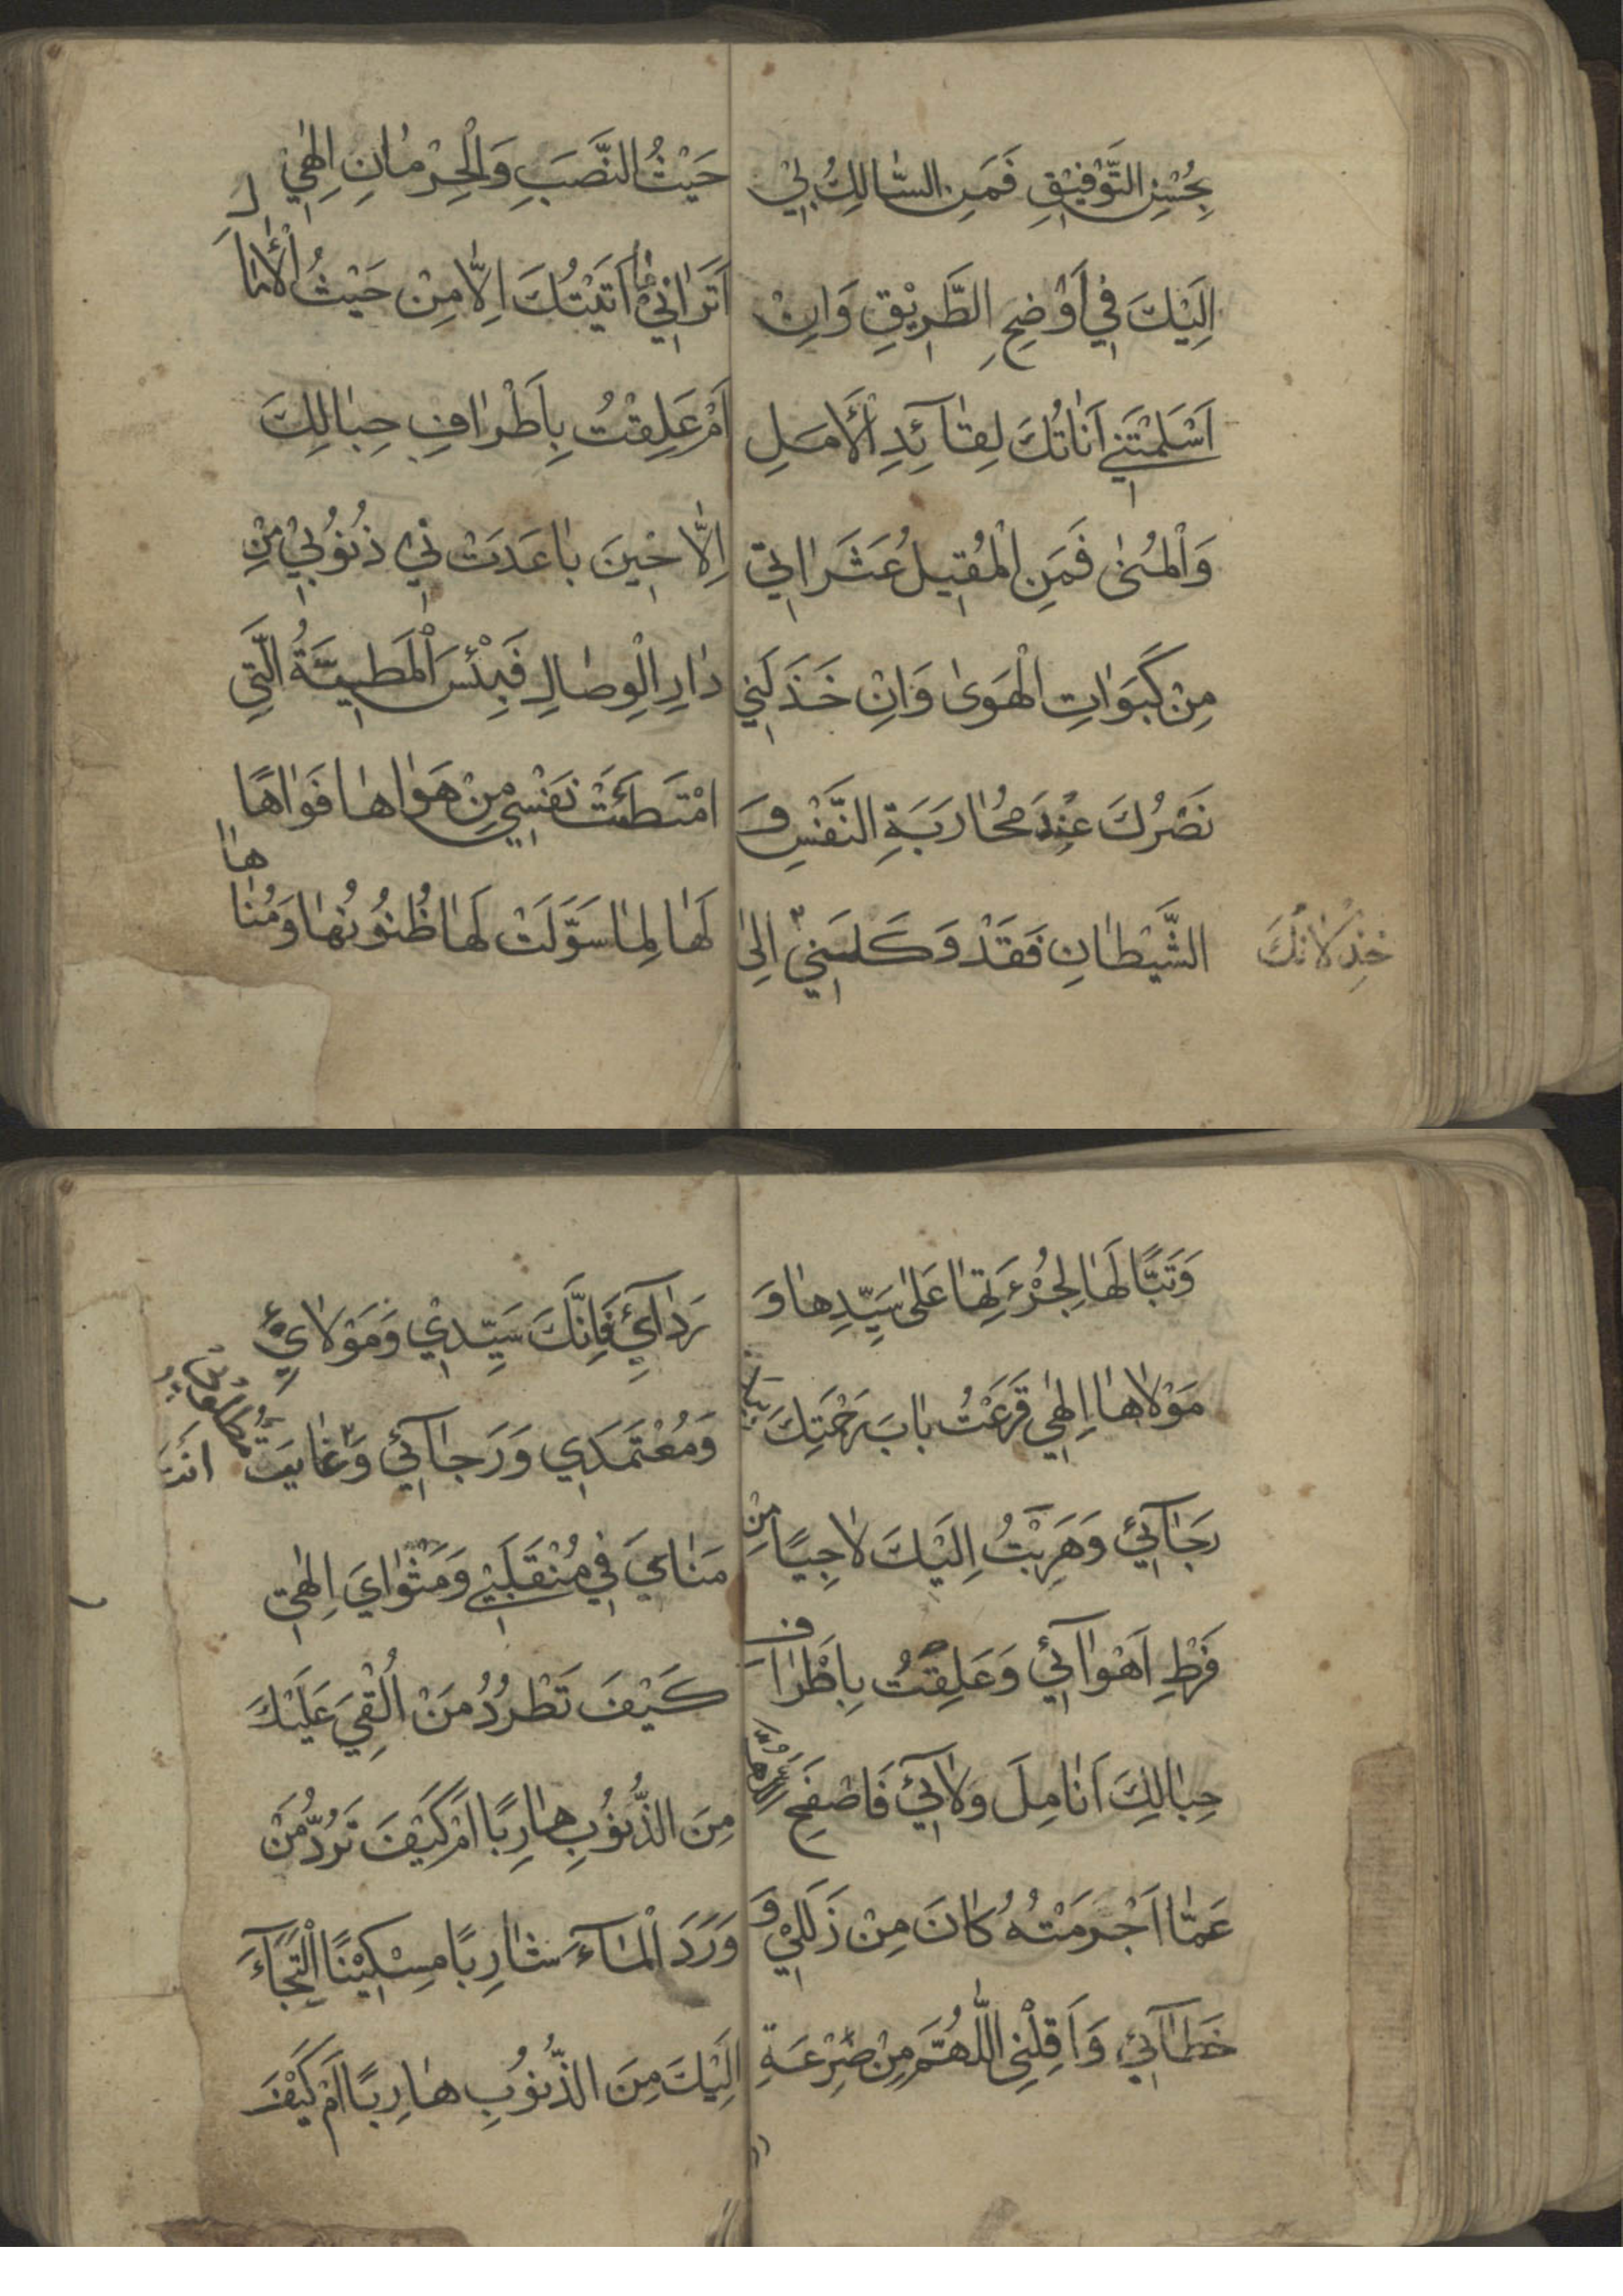 بِحُسْنِ التَّوْفِيْقِ فَمَنِ السّٰالِكُ بِيْ
اِلَيْكَ فِي اَوْضَحِ الطَّرِيْقِ وَاِنْ
اَسْلَمْتَنِي اَنٰاتُكَ لِقٰآئِدِ الْأَمَلِ
وَالْمُنٰى فَمَنِ الْمُقِيلُ عَثَرٰاتِي
مِنْ كَبَوٰاتِ الْهَوىٰ وَاِنْ خَذَلَنِي
نَصْرُكَ عِنْدَ مُحٰارَبَةِ النَّفْسِ وَ
الشَّيْطٰانِ فَقَدْ وَكَلَنِيْ اِلىٰ
خِذْلٰانُكَ
حَيْثُ النَّصَبِ وَالْحِرْمٰانِ اِلٰهِيْ
اَتَرٰانِيْ مٰا اَتَيْتُكَ اِلّٰا مِنْ حَيْثُ الْأٰمٰالِ
اَمْ عَلِقْتُ بِاَطْرٰافِ حِبٰالِكَ
اِلّٰا حِيْنَ بٰاعَدَتْنِي ذُنُوْبِيْ مِنْ
دٰارِ الْوِصٰالِ فَبِئْسَ الْمَطِيَّةُ الَّتِي
امْتَطَئَتْ نَفْسِي مِنْ هَوٰاهٰا فَوٰاهًا
لَهٰا لِمٰا سَوَّلَتْ لَهٰا ظُنُوْنُهٰا وَمُنٰاهٰا
وَتَبًّا لَهٰا لِجُرْءَتِهٰا عَلىٰ سَيِّدِهٰا وَ
مَوْلٰاهٰا اِلٰهِي قَرَعْتُ بٰابَ رَحْمَتِكَ بِيَدِ
رَجٰآئِيْ وَهَرَبْتُ اِلَيْكَ لٰاجِيًا مِنْ
فَرْطِ اَهْوٰآئِيْ وَعَلِقْتُ بِاَطْرٰافِ
حِبٰالِكَ اَنٰامِلَ وَلٰآئِيْ فَاصْفَحِ اللّٰهُمَّ
عَمّٰا اَجْرَمْتُهُ كٰانَ مِنْ زَلَلِيْ وَ
خَطٰآئِيْ وَاَقِلْنِي اللّٰهُمَّ مِنْ صَرْعَةِ
رَدٰآئِيْ فَاِنَّكَ سَيِّدِيْ وَمَوْلٰايَ
وَمُعْتَمَدِي وَرَجٰآئِيْ وَغٰايَتُ مَطْلُوْبِيْ اَنْتَ
مَنٰايَ فِي مُنْقَلَبِيْ وَمَثْوٰايَ اِلٰهِي
كَيْفَ تَطْرُدُ مَنْ اُلْقِيَ عَلَيْكَ
مِنَ الذُّنُوْبِ هٰارِبًا اَمْ كَيْفَ تَرُدُّ مَنْ
وَرَدَ الْمٰآءَ شٰارِبًا مِسْكِيْنًا الْتَجٰآءَ
اِلَيْكَ مِنَ الذُّنُوْبِ هٰارِبًا اَمْ كَيْفَ